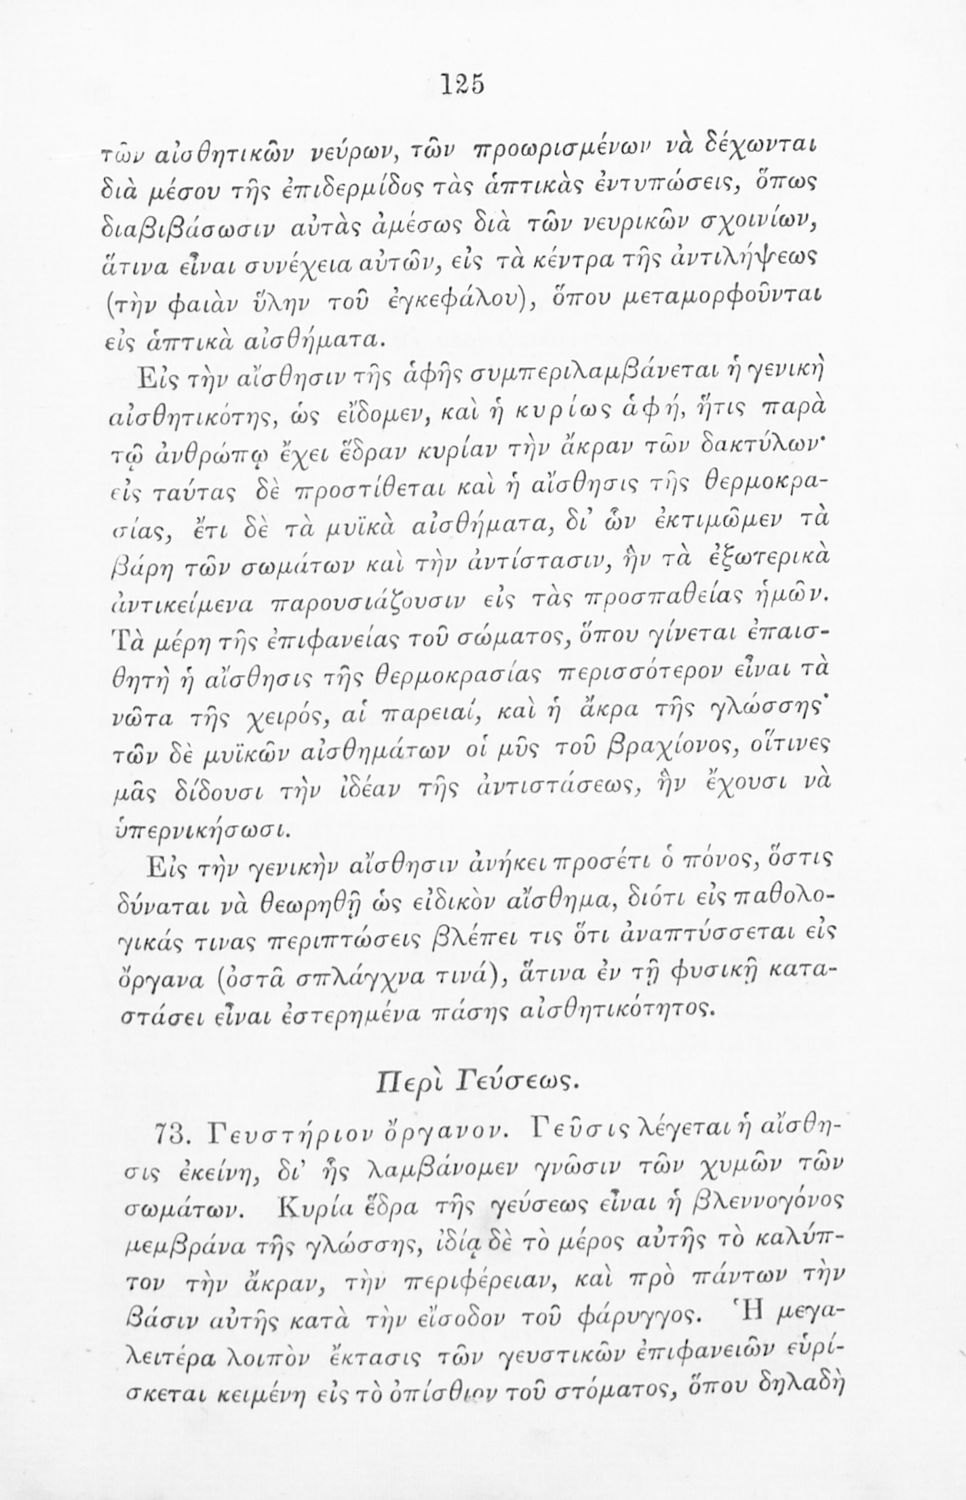 125
τῶν αἰσθητικῶν νεύρων, τῶν προωρισμένων νὰ δέχωνται
διὰ μέσου τῆς ἐπιδερμίδος τὰς ἁπτικὰς ἐντυπώσεις, ὅπως
διαβιβάσωσιν αὐτὰς ἀμέσως διὰ τῶν νευρικῶν σχοινίων,
ἅτινα εἶναι συνέχεια αὐτῶν, εἰς τὰ κέντρα τῆς ἀντιλήψεως
(τὴν φαιὰν ὕλην τοῦ ἐγκεφάλου), ὅπου μεταμορφοῦνται
εἰς ἁπτικὰ αἰσθήματα.
Εἰς τὴν αἴσθησιν τῆς ἁφῆς συμπεριλαμβάνεται ἡ γενικὴ
αἰσθητικότης, ὡς εἴδομεν, καὶ ἡ κυρίως ἁφή, ἥτις παρὰ
τῷ ἀνθρώπῳ ἔχει ἕδραν κυρίαν τὴν ἄκραν τῶν δακτύλων·
εἰς ταύτας δὲ προστίθεται καὶ ἡ αἴσθησις τῆς θερμοκρα-
σίας, ἔτι δὲ τὰ μυϊκὰ αἰσθήματα, δι' ὧν ἐκτιμῶμεν τὰ
βάρη τῶν σωμάτων καὶ τὴν ἀντίστασιν, ἣν τὰ ἐξωτερικὰ
ἀντικείμενα παρουσιάζουσιν εἰς τὰς προσπαθείας ἡμῶν.
Τὰ μέρη τῆς ἐπιφανείας τοῦ σώματος, ὅπου γίνεται ἐπαισ-
θητὴ ἡ αἴσθησις τῆς θερμοκρασίας περισσότερον εἶναι τὰ
νῶτα τῆς χειρός, αἱ παρειαί, καὶ ἡ ἄκρα τῆς γλώσσης·
τῶν δὲ μυϊκῶν αἰσθημάτων οἱ μῦς τοῦ βραχίονος, οἵτινες
μᾶς δίδουσι τὴν ἰδέαν τῆς ἀντιστάσεως, ἣν ἔχουσι νὰ
ὑπερνικήσωσι.
Εἰς τὴν γενικὴν αἴσθησιν ἀνήκει προσέτι ὁ πόνος, ὅστις
δύναται νὰ θεωρηθῇ ὡς εἰδικὸν αἴσθημα, διότι εἰς παθολο-
γικάς τινας περιπτώσεις βλέπει τις ὅτι ἀναπτύσσεται εἰς
ὄργανα (ὀστᾶ σπλάγχνα τινά), ἅτινα ἐν τῇ φυσικῇ κατα-
στάσει εἶναι ἐστερημένα πάσης αἰσθητικότητος.
Περὶ Γεύσεως.
73. Γευστήριον ὄργανον. Γεῦσις λέγεται ἡ αἴσθη-
σις ἐκείνη, δι' ἧς λαμβάνομεν γνῶσιν τῶν χυμῶν τῶν
σωμάτων. Κυρία ἕδρα τῆς γεύσεως εἶναι ἡ βλεννογόνος
μεμβράνα τῆς γλώσσης, ἰδίᾳ δὲ τὸ μέρος αὐτῆς τὸ καλύπ-
τον τὴν ἄκραν, τὴν περιφέρειαν, καὶ πρὸ πάντων τὴν
βάσιν αὐτῆς κατὰ τὴν εἴσοδον τοῦ φάρυγγος. Ἡ μεγα-
λειτέρα λοιπὸν ἔκτασις τῶν γευστικῶν ἐπιφανειῶν εὑρί-
σκεται κειμένη εἰς τὸ ὀπίσθιον τοῦ στόματος, ὅπου δηλαδὴ